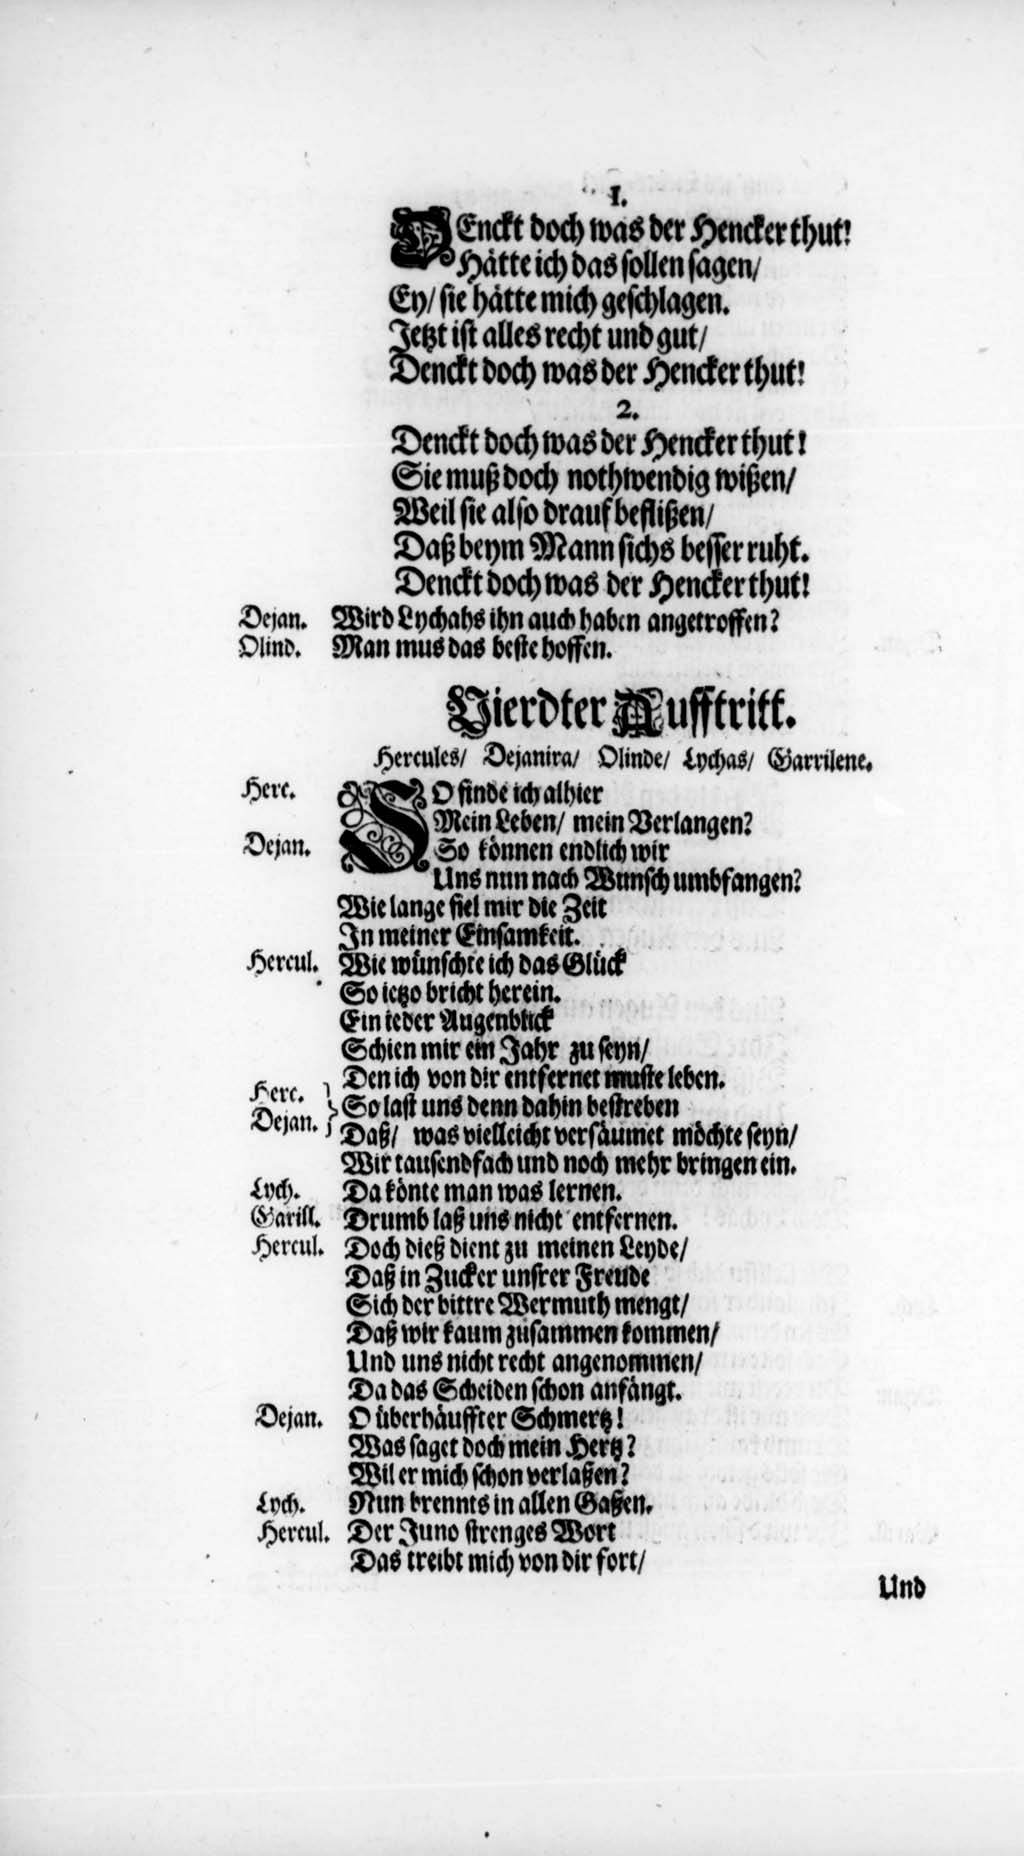 1.
DEnckt doch was der Hencker thut!
Hätte ich das sollen sagen/
Ey/ sie hätte mich geschlagen.
Jetzt ist alles recht und gut/
Denckt doch was der Hencker thut!
2.
Denckt doch was der Hencker thut!
Sie muß doch nothwendig wißen/
Weil sie also drauf beflißen/
Daß beym Mann sichs besser ruht.
Denckt doch was der Hencker thut!
Dejan. Wird Lychahs ihn auch haben angetroffen?
Olind. Man mus das beste hoffen.
Vierdter Aufftritt.
Hercules/ Dejanira/ Olinde/ Lychas/ Garrilene.
Herc. SO finde ich alhier
Mein Leben/ mein Verlangen?
Dejan. So können endlich wir
Uns nun nach Wunsch umbfangen?
Wie lange fiel mir die Zeit
In meiner Einsamkeit.
Hercul. Wie wünschte ich das Glück
So ietzo bricht herein.
Ein ieder Augenblick
Schien mir ein Jahr zu seyn/
Den ich von dir entfernet muste leben.
Herc. } So last uns denn dahin bestreben
Dejan. } Daß/ was vielleicht versäumet möchte seyn/
Wir tausendfach und noch mehr bringen ein.
Lych. Da könte man was lernen.
Garill. Drumb laß uns nicht entfernen.
Hercul. Doch dieß dient zu meinen Leyde/
Daß in Zucker unsrer Freude
Sich der bittre Wermuth mengt/
Daß wir kaum zusammen kommen/
Und uns nicht recht angenommen/
Da das Scheiden schon anfängt.
Dejan. O überhäuffter Schmertz!
Was saget doch mein Hertz?
Wil er mich schon verlaßen?
Lych. Nun brennts in allen Gaßen.
Hercul. Der Juno strenges Wort
Das treibt mich von dir fort/
Und